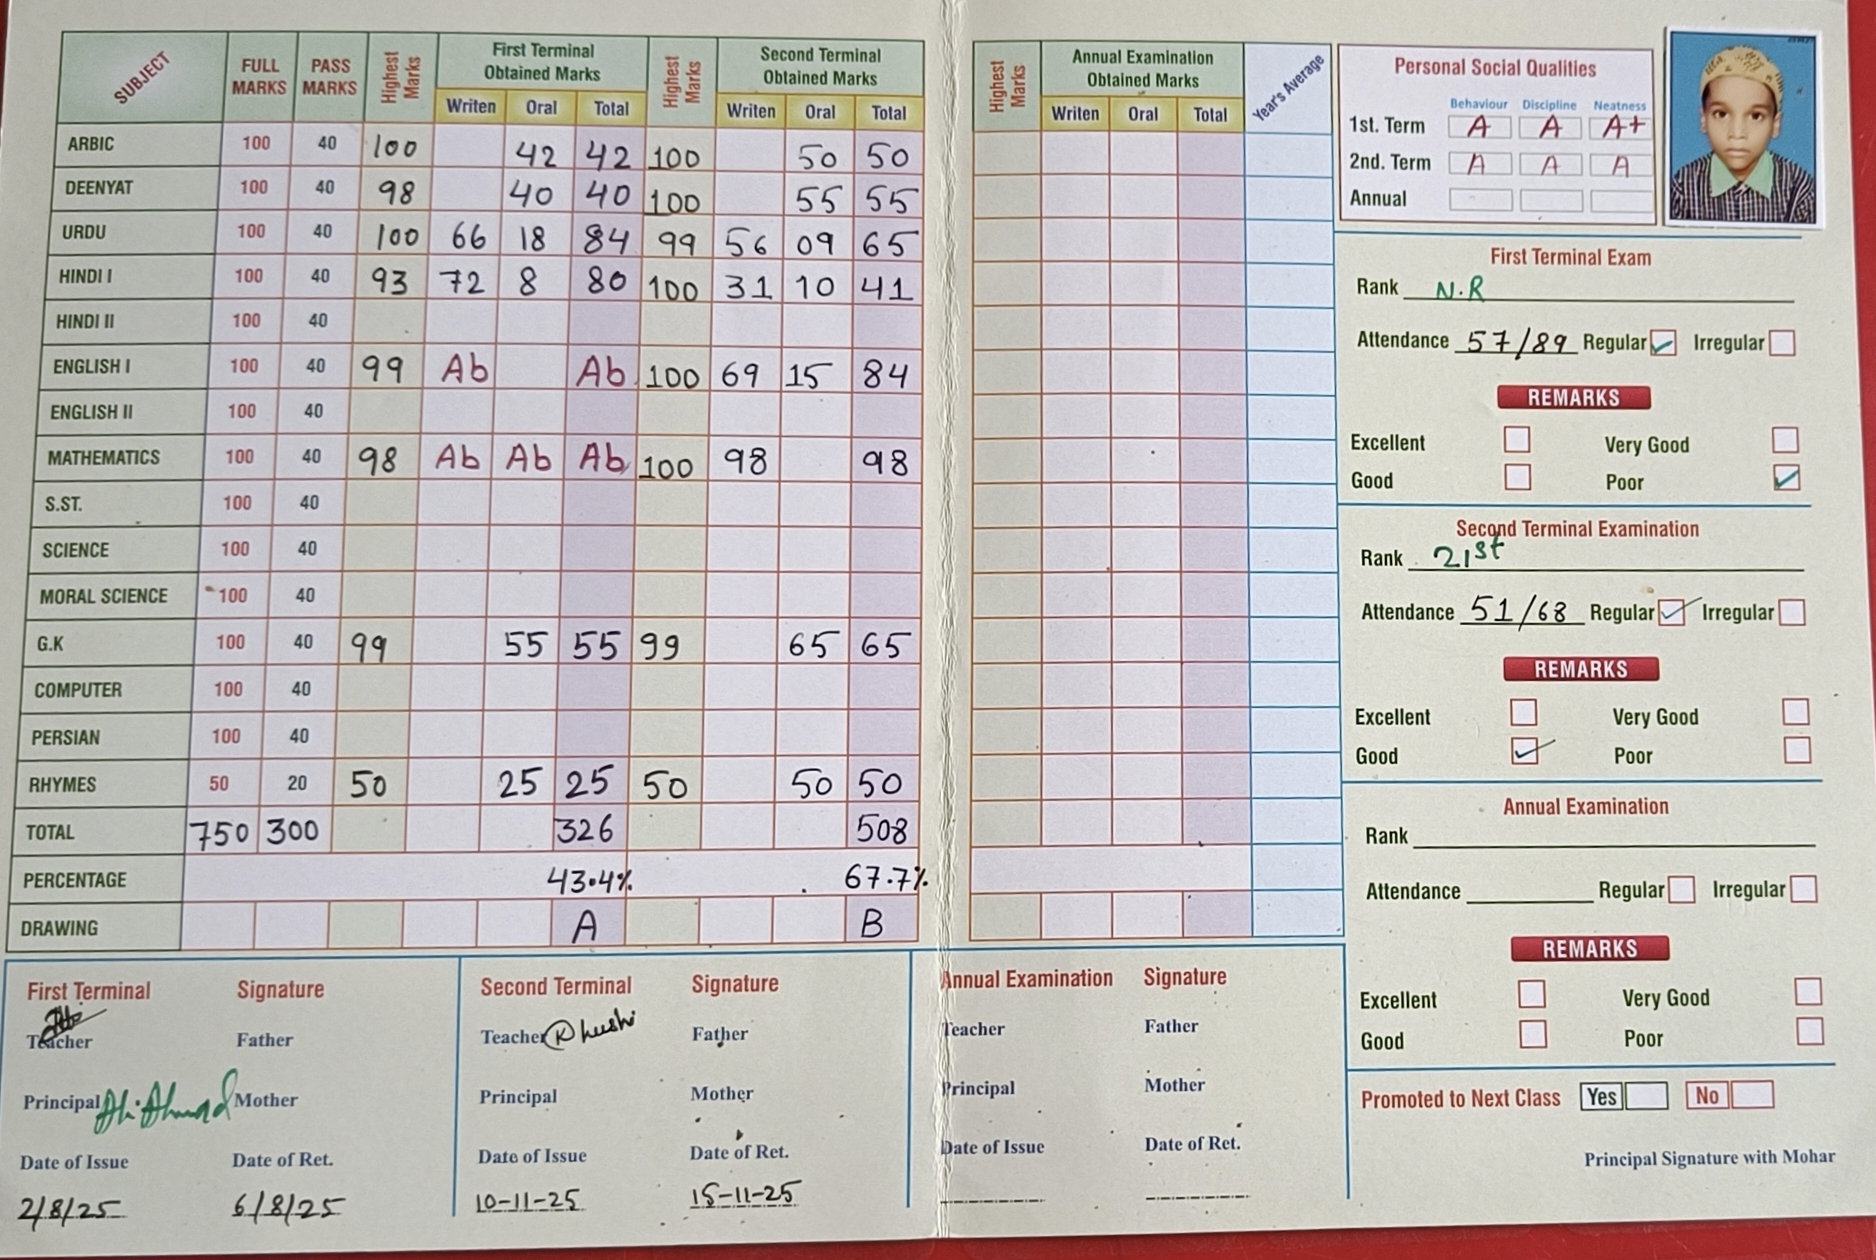 SUBJECT FULL MARKS PASS MARKS Highest Marks First Terminal Obtained Marks Writen Oral Total Highest Marks Second Terminal Obtained Marks Writen Oral Total
ARBIC 100 40 100 42 42 100 50 50
DEENYAT 100 40 98 40 40 100 55 55
URDU 100 40 100 66 18 84 99 56 09 65
HINDI I 100 40 93 72 8 80 100 31 10 41
HINDI II 100 40
ENGLISH I 100 40 99 Ab Ab 100 69 15 84
ENGLISH II 100 40
MATHEMATICS 100 40 98 Ab Ab Ab 100 98 98
S.ST. 100 40
SCIENCE 100 40
MORAL SCIENCE 100 40
G.K 100 40 99 55 55 99 65 65
COMPUTER 100 40
PERSIAN 100 40
RHYMES 50 20 50 25 25 50 50 50
TOTAL 750 300 326 508
PERCENTAGE 43.4% 67.7%
DRAWING A B
First Terminal Signature
Teacher Father
Principal Ali Ahmad Mother
Date of Issue Date of Ret.
2/8/25 6/8/25
Second Terminal Signature
Teacher Khushi Father
Principal Mother
Date of Issue Date of Ret.
10-11-25 15-11-25
Highest Marks Annual Examination Obtained Marks Writen Oral Total Year's Average
Annual Examination Signature
Teacher Father
Principal Mother
Date of Issue Date of Ret.
Personal Social Qualities
Behaviour Discipline Neatness
1st. Term A A A+
2nd. Term A A A
Annual
First Terminal Exam
Rank N.R
Attendance 57/89 Regular Irregular
REMARKS
Excellent Very Good
Good Poor
Second Terminal Examination
Rank 21st
Attendance 51/68 Regular Irregular
REMARKS
Excellent Very Good
Good Poor
Annual Examination
Rank
Attendance Regular Irregular
REMARKS
Excellent Very Good
Good Poor
Promoted to Next Class Yes No
Principal Signature with Mohar